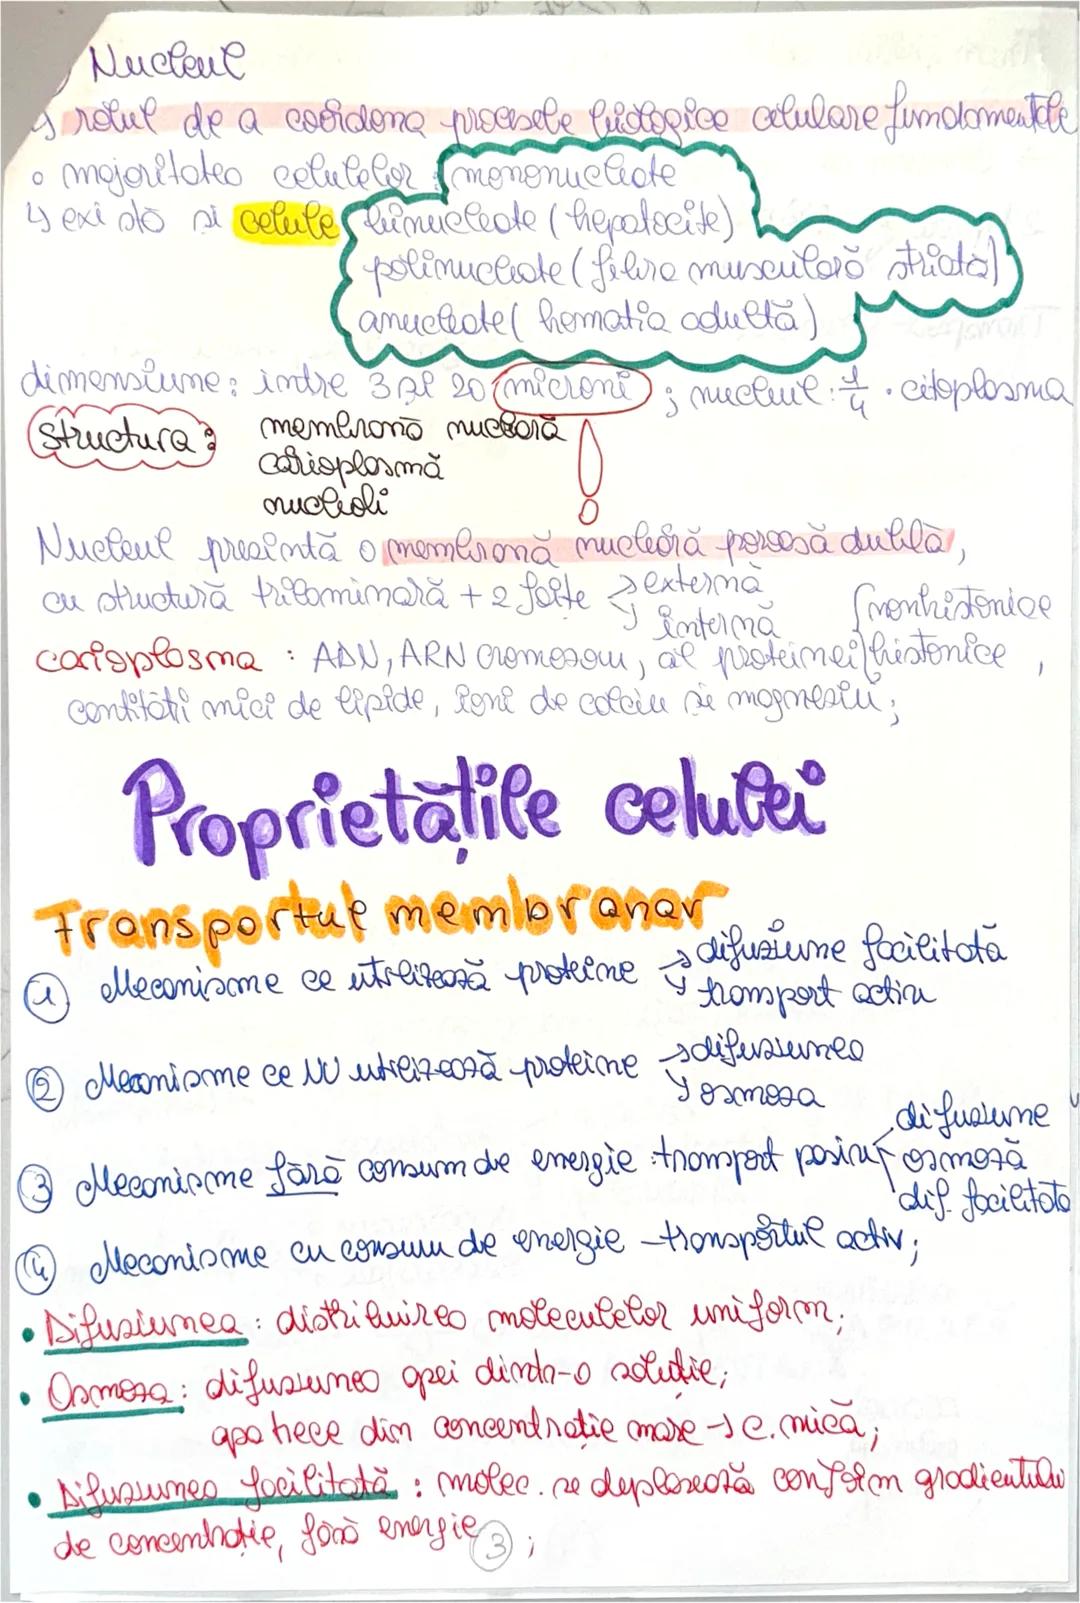 Nucleul
↳ rolul de a coordona procesele biologice celulare fundamentale
o majoritatea celulelor : mononucleate
↳ există si celule binucleate (hepatocite)
polinucleate (fibra musculară striată)
anucleate (hematia adultă)
dimensiune: intre 3 și 20 microni ; nucleul: 1/4 · citoplasma
structura: membrană nucleară
carioplasmă
nucleoli
!
Nucleul prezintă o membrană nucleară poroasă dublă,
cu structură trilaminară + 2 foițe → externă
↘ internă
carioplasma : ADN, ARN cromozom, al proteinei nonhistonice
histonice ,
cantități mici de lipide, ioni de calciu și magneziu;
Proprietățile celulei
Transportul membranar
1 Mecanisme ce utilizează proteine → difuziune facilitată
↘ transport activ
2 Mecanisme ce NU utilizează proteine → difuziunea
↘ osmoza
3 Mecanisme fără consum de energie : transport pasiv difuziune
osmoză
dif. facilitata
4 Mecanisme cu consum de energie – transportul activ;
• Difuziunea : distribuirea moleculelor uniform;
• Osmoza : difuziunea apei dintr-o soluție;
apa trece din concentratie mare → c. mică;
• Difuziunea facilitată : molec. se deplasează conform gradientului
de concentratie, fără energie 3 ;